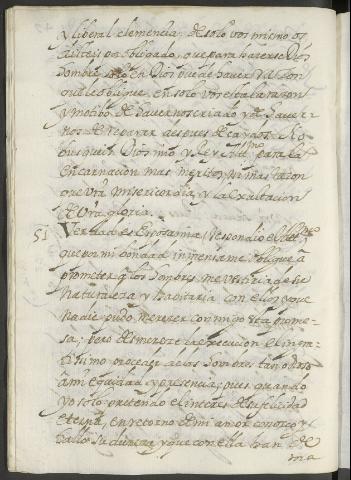 y liberal clemencia, de solo vos mismo os
disteis por obligado, que para hacerse Dios
hombre solo en Dios puede haver razon
que le obligue, en solo vos esta la razon
y motibo de havernos criado y de haver-
nos de reparar despues de caydos. No
busqueis Dios mio y Rey Altmo. para la
encarnacion mas meritos, ni mas razon
que vra misericordia, y la exaltacion
de vra gloria.
51 Verdad es Esposa mia (respondio el Altmo.)
que por mi bondad inmensa me obligue a
prometer a los hombres me vestiria de su
naturaleza y habitaria con ellos y que
nadie pudo merecer conmigo esta prome-
sa; pero desmerece la execucion el ingra-
tissimo proceder de los hombres tan odioso
a mi equidad y presencia; pues quando
yo solo pretendo el interes de su felicidad
eterna, en retorno de mi amor conozco y
hallo su dureza y que con ella han de